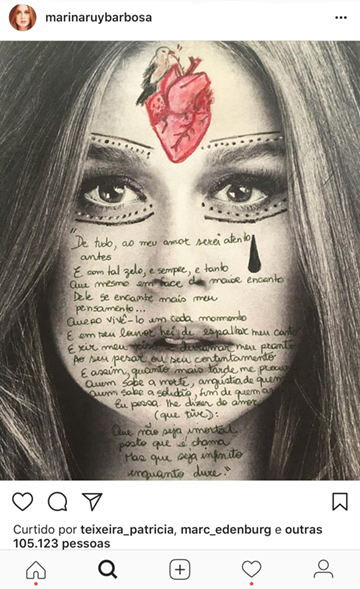 marinaruybarbosa
" De tudo, ao meu amor serei atento
antes
E com tal zelo, e sempre, e tanto
Que mesmo em face do maior encanto
Dele se encante mais meu
pensamento...
Quero vivê-lo em cada momento
E em seu louvor hei de espalhar meu canto
E rir meu riso e derramar meu pranto
Ao seu pesar ou seu contentamento
E assim, quanto mais tarde me procure
Quem sabe a morte, angústia de quem
Quem sabe a solidão, fim de quem ama
Eu possa lhe dizer do amor
(que tive):
Que não seja imortal
posto que é chama
Mas que seja infinito
enquanto dure."
Curtido por teixeira_patricia, marc_edenburg e outras
105.123 pessoas